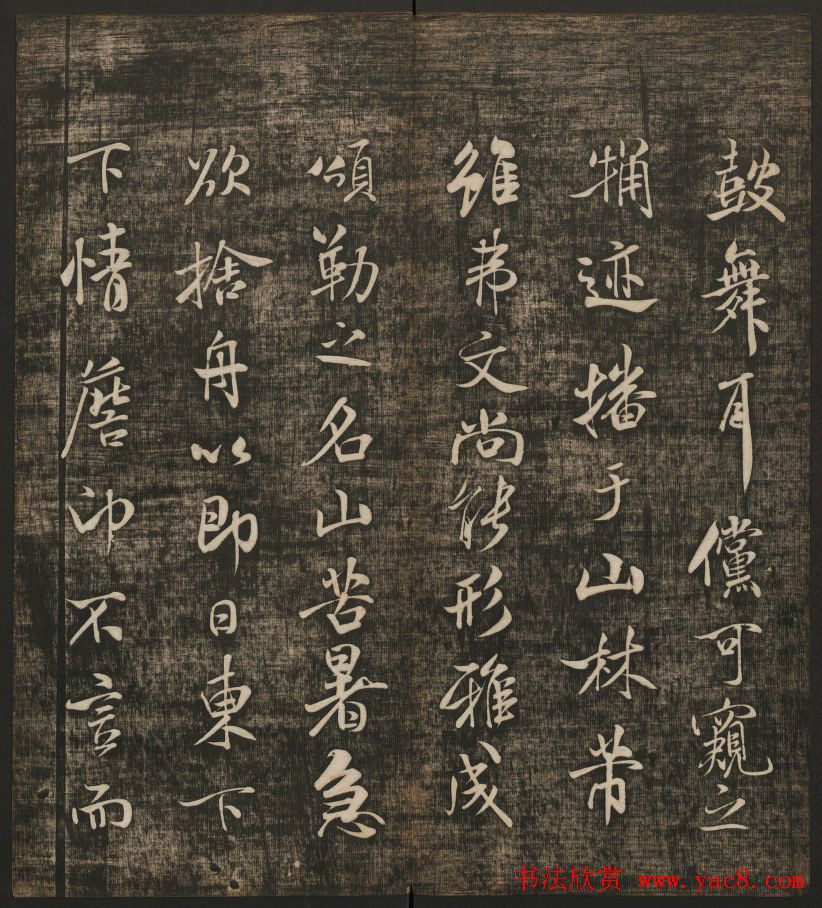 鼓舞耳儻可窺之
牗迹播于山林芾
雖弗文尚能形雅成
頌勒之名山苦暑急
欲捨舟以即日東下
下情蘑仰不言而
书法欣赏 www.yac8.com